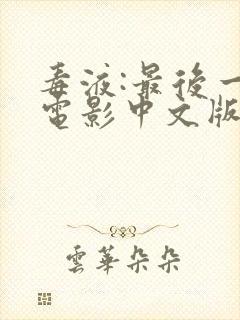 毒液:最後一
電影中文版
雲華朵朵